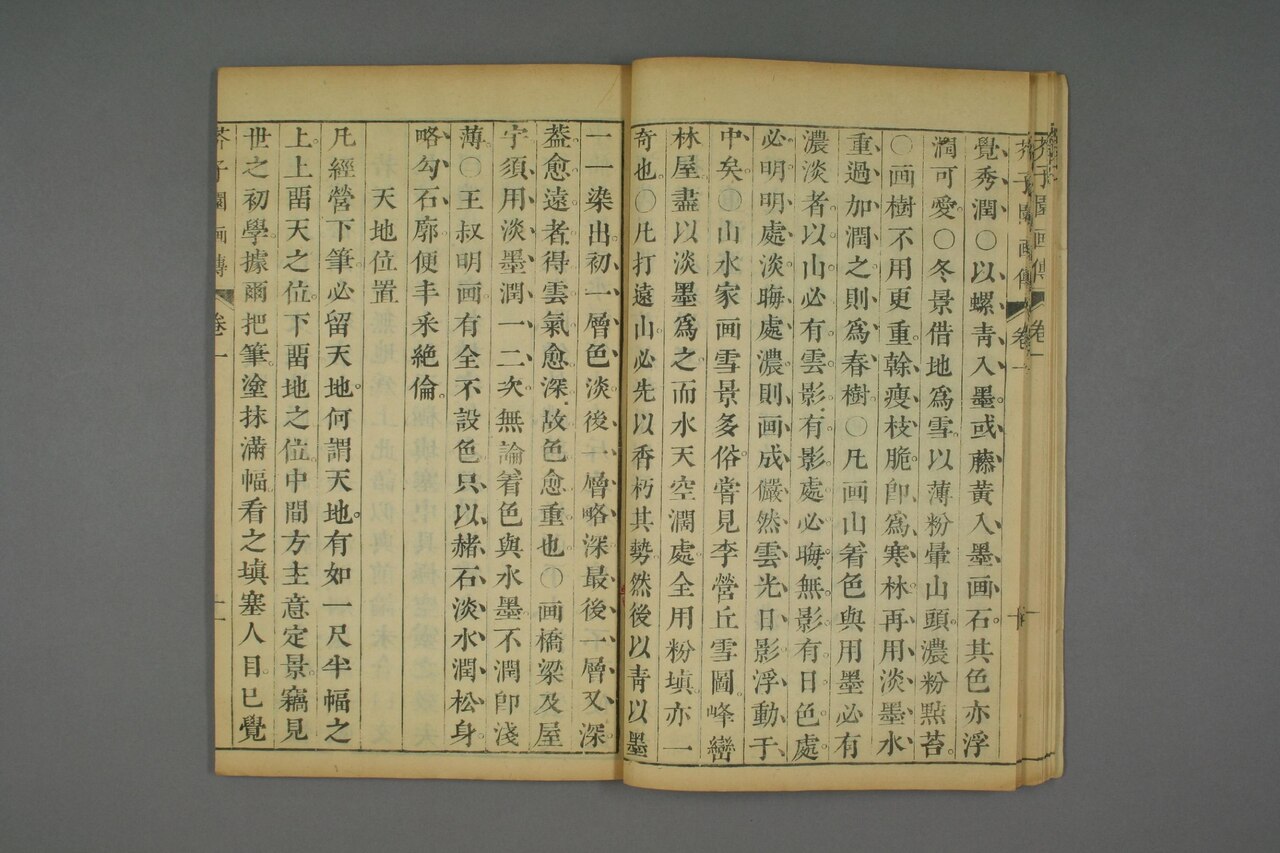 芥子園画傳 卷一
芥子園画傳 卷一 十
覺秀潤○以螺靑入墨或藤黃入墨画石其色亦浮
潤可愛○冬景借地爲雪以薄粉暈山頭濃粉㸃苔
○画樹不用更重幹瘦枝脆卽爲寒林再用淡墨水
重過加潤之則爲春樹○凡画山着色與用墨必有
濃淡者以山必有雲影有影處必晦無影有日色處
必明明處淡晦處濃則画成儼然雲光日影浮動于
中矣○山水家画雪景多俗嘗見李營丘雪圖峰巒
林屋盡以淡墨爲之而水天空濶處全用粉塡亦一
奇也○凡打遠山必先以香朽其勢然後以靑以墨
一一染出初一層色淡後一層略深最後一層又深
葢愈遠者得雲氣愈深故色愈重也○画橋梁及屋
宇須用淡墨潤一二次無論着色與水墨不潤卽淺
薄○王叔明画有全不設色只以赭石淡水潤松身
略勾石廓便丰采絶倫
天地位置
凡經營下筆必留天地何謂天地有如一尺半幅之
上上畱天之位下畱地之位中間方主意定景竊見
世之初學據爾把筆塗抹滿幅看之塡塞人目已覺
芥子園画傳 卷一 十一